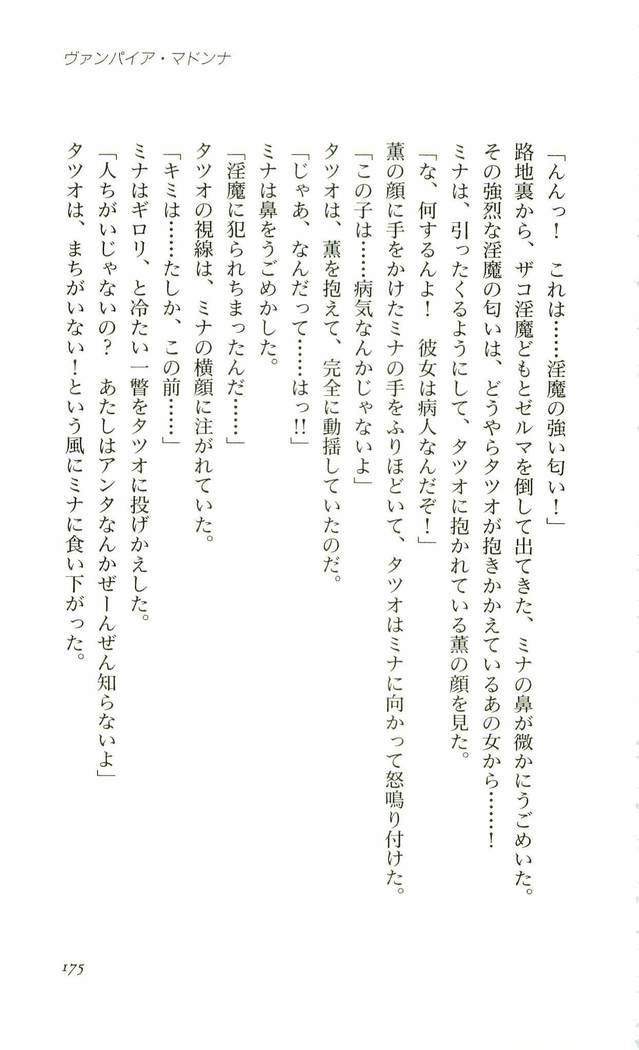 ヴァンパイア・マドンナ
「んんっ！　これは……淫魔の強い匂い！」
路地裏から、ザコ淫魔どもとゼルマを倒して出てきた、ミナの鼻が微かにうごめいた。
その強烈な淫魔の匂いは、どうやらタツオが抱きかかえているあの女から………！
ミナは、引ったくるようにして、タツオに抱かれている薫の顔を見た。
「な、何するんよ！　彼女は病人なんだぞ！」
薫の顔に手をかけたミナの手をふりほどいて、タツオはミナに向かって怒鳴り付けた。
「この子は……病気なんかじゃないよ」
タツオは、薫を抱えて、完全に動揺していたのだ。
「じゃあ、なんだって……はっ!!」
ミナは鼻をうごめかした。
「淫魔に犯られちまったんだ……」
タツオの視線は、ミナの横顔に注がれていた。
「キミは……たしか、この前……」
ミナはギロリ、と冷たい一瞥をタツオに投げかえした。
「人ちがいじゃないの？　あたしはアンタなんかぜーんぜん知らないよ」
タツオは、まちがいない！という風にミナに食い下がった。
175